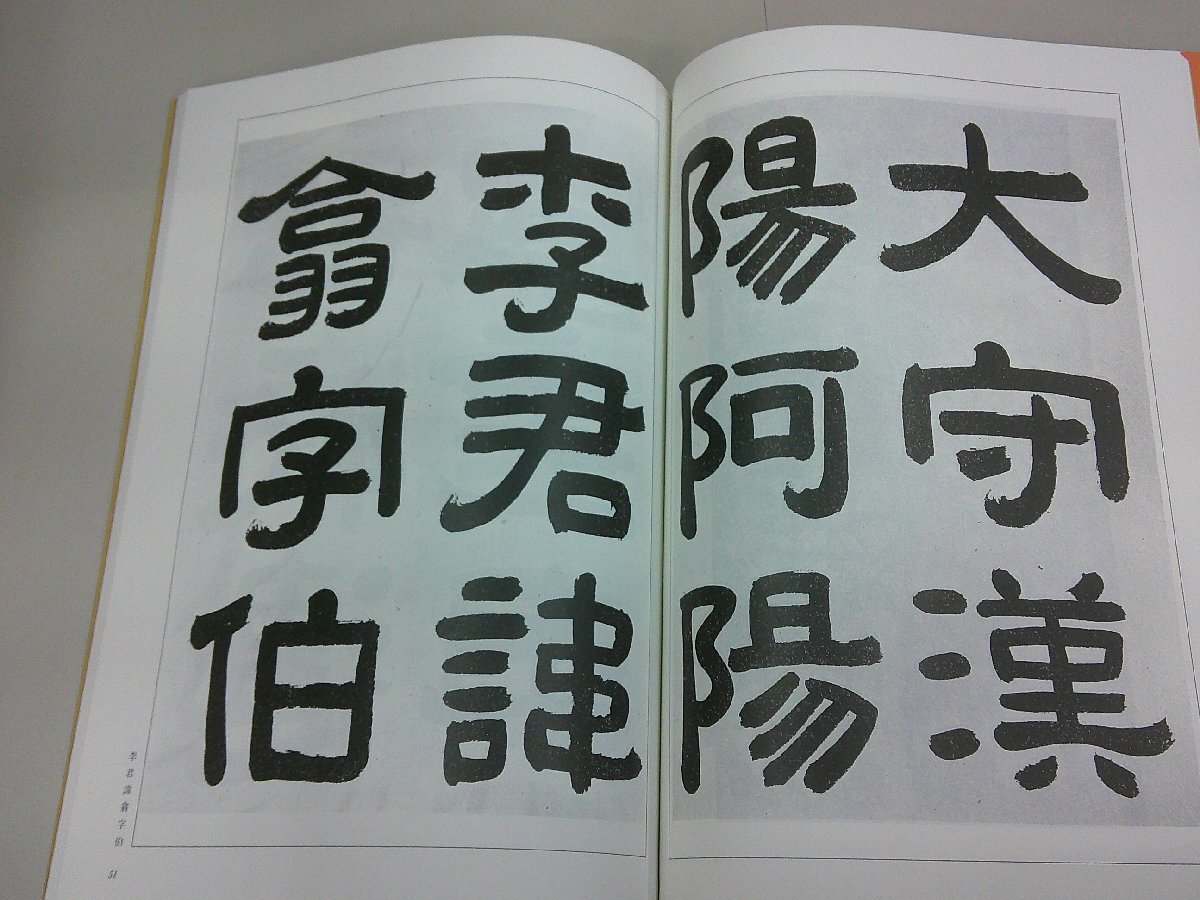 大守漢
陽阿陽
李君諱
翕字伯
李君諱翕字伯
51